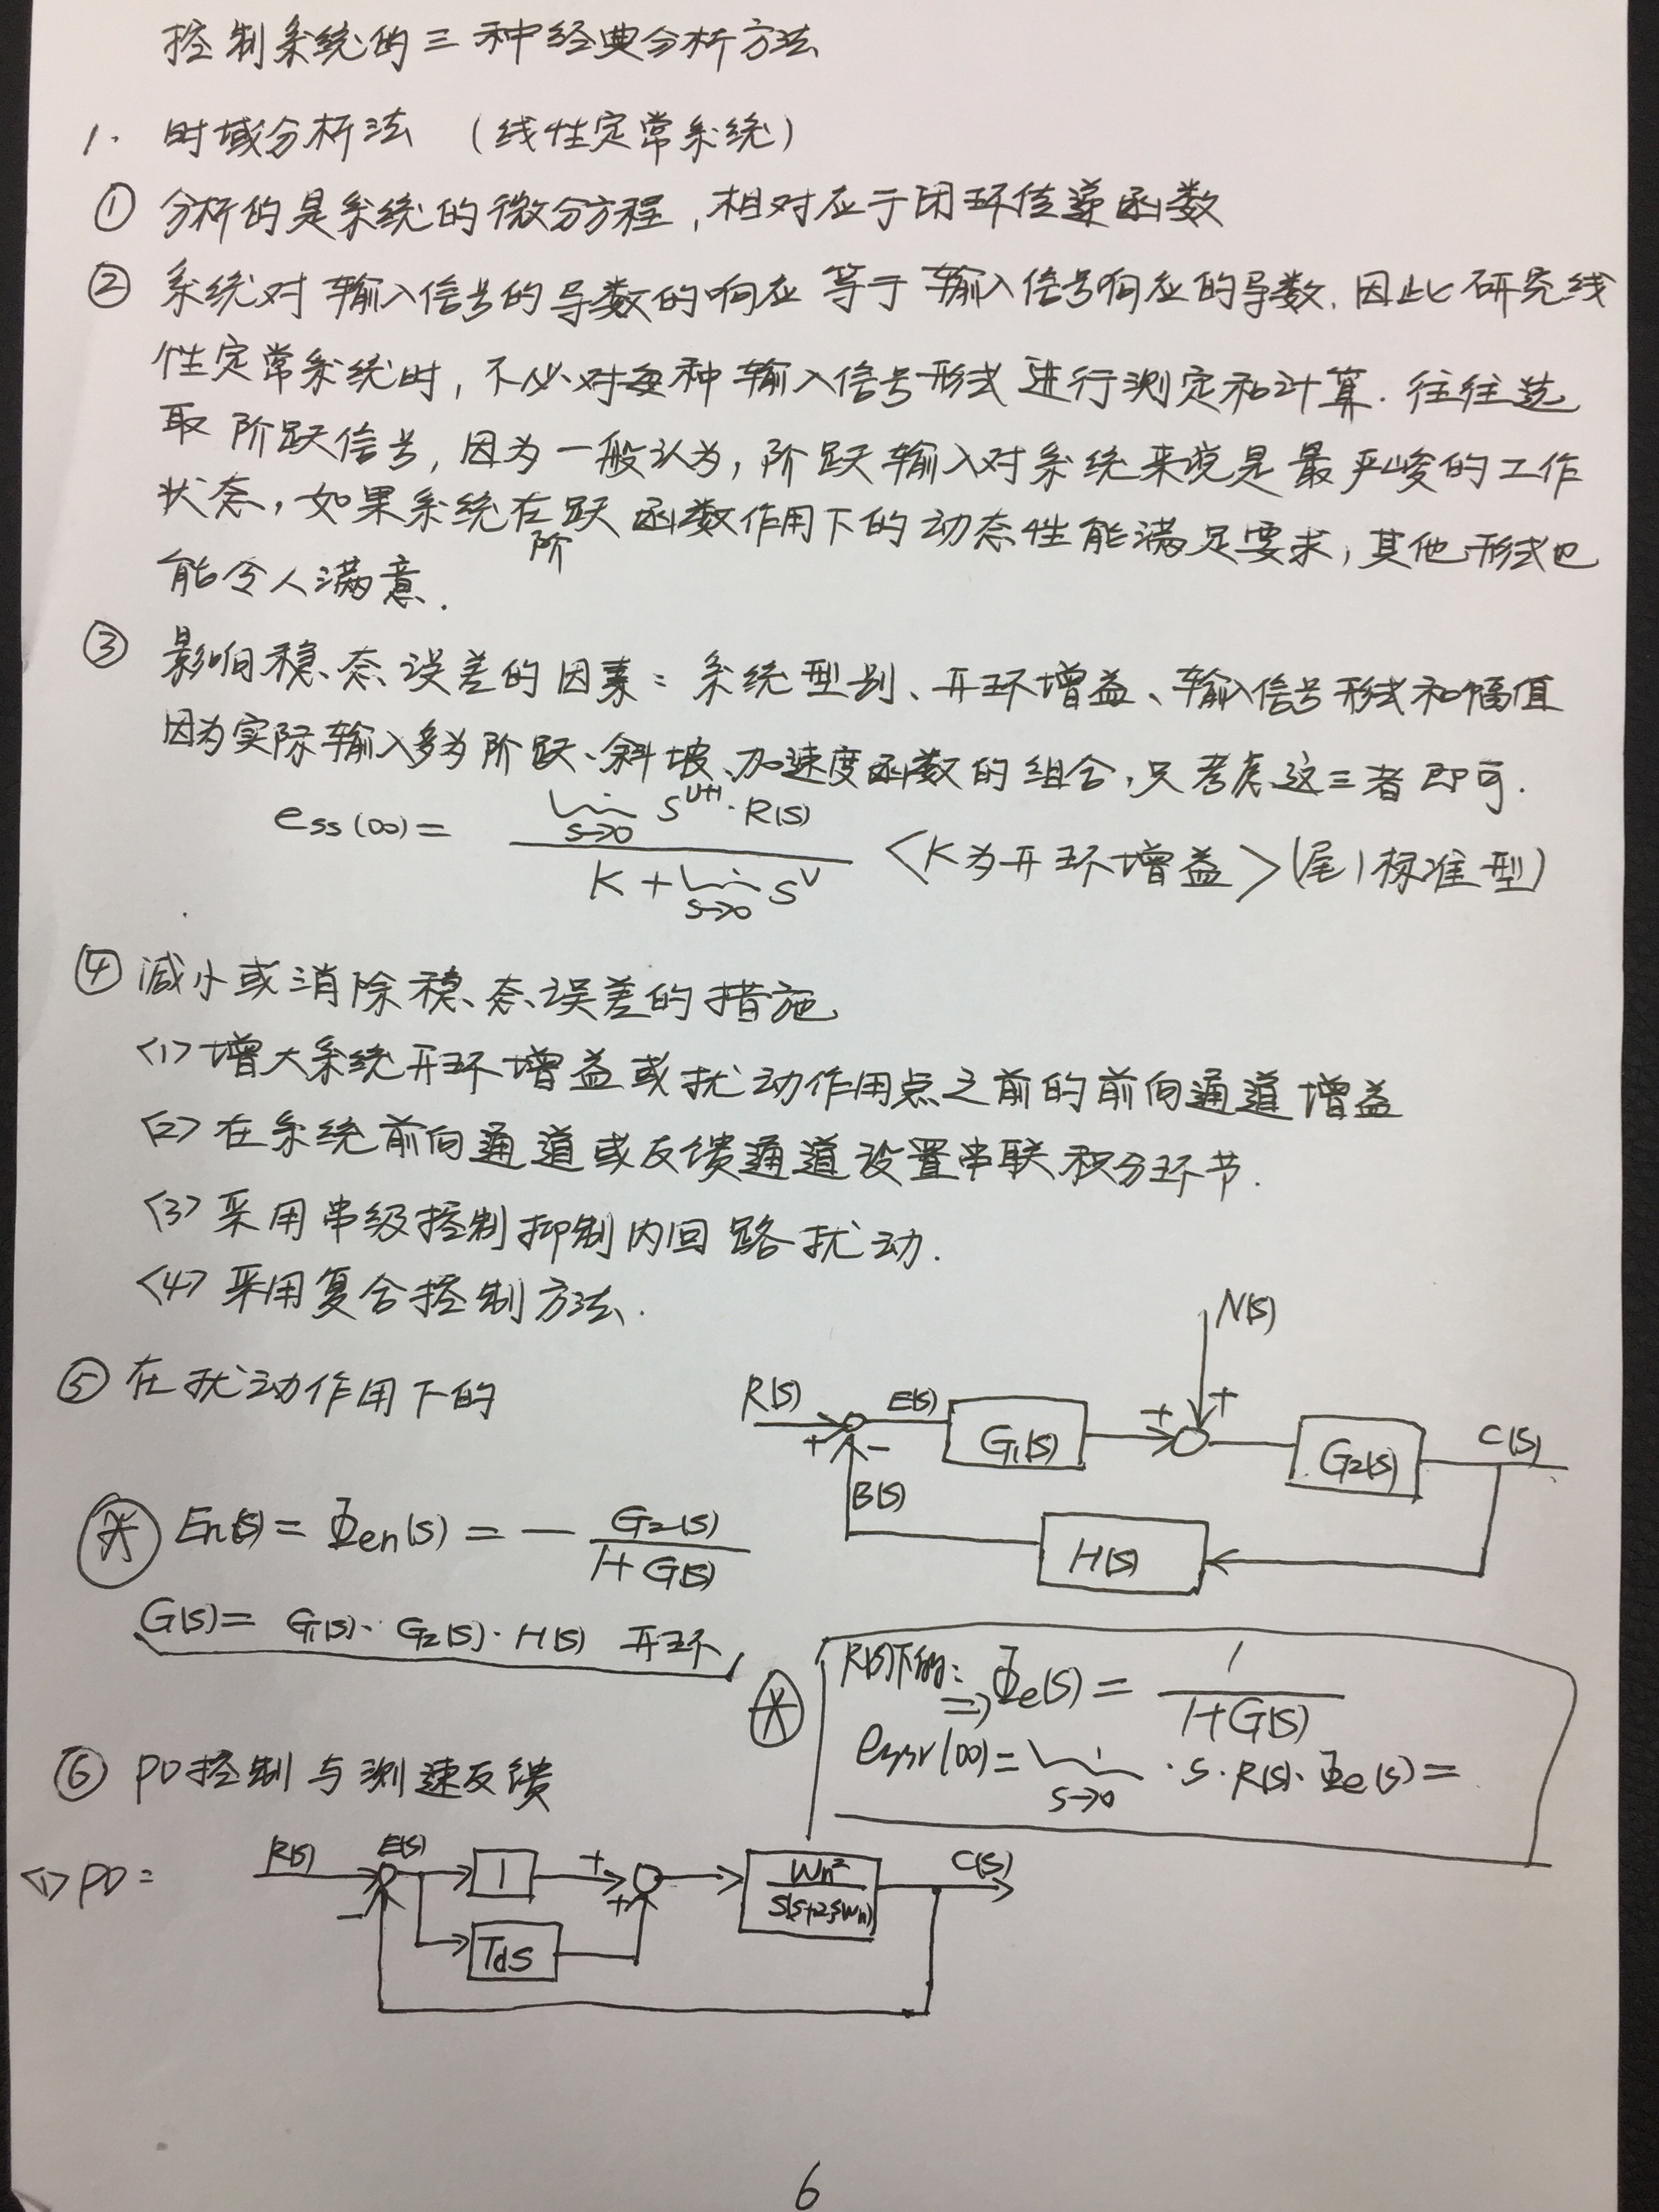 控制系统的三种经典分析方法
1. 时域分析法 (线性定常系统)
① 分析的是系统的微分方程,相对应于闭环传递函数
② 系统对输入信号的导数的响应等于输入信号响应的导数.因此研究线
性定常系统时,不必对每种输入信号形式进行测定和计算.往往选
取阶跃信号,因为一般认为,阶跃输入对系统来说是最严峻的工作
状态,如果系统在阶跃函数作用下的动态性能满足要求,其他形式也
能令人满意.
③ 影响稳态误差的因素:系统型别、开环增益、输入信号形式和幅值
因为实际输入多为阶跃、斜坡、加速度函数的组合,只考虑这三者即可.
ess(∞) = lim s→0 S^(υ+1)·R(s) / (K + lim s→0 S^υ) <K为开环增益> (尾1标准型)
④ 减小或消除稳态误差的措施
<1> 增大系统开环增益或扰动作用点之前的前向通道增益
<2> 在系统前向通道或反馈通道设置串联积分环节.
<3> 采用串级控制抑制内回路扰动.
<4> 采用复合控制方法.
⑤ 在扰动作用下的
N(s)
R(s) + - E(s) G1(s) + + G2(s) C(s)
B(s) H(s)
* En(s) = Φen(s) = - G2(s) / (1+G(s))
G(s) = G1(s)·G2(s)·H(s) 开环
* R(s)下的: ⇒ Φe(s) = 1 / (1+G(s))
essr(∞) = lim s→0 ·S·R(s)·Φe(s) =
⑥ PD控制与测速反馈
<1> PD: R(s) - E(s) 1 + + Wn² / S(S+2ξWn) C(s)
TdS
6